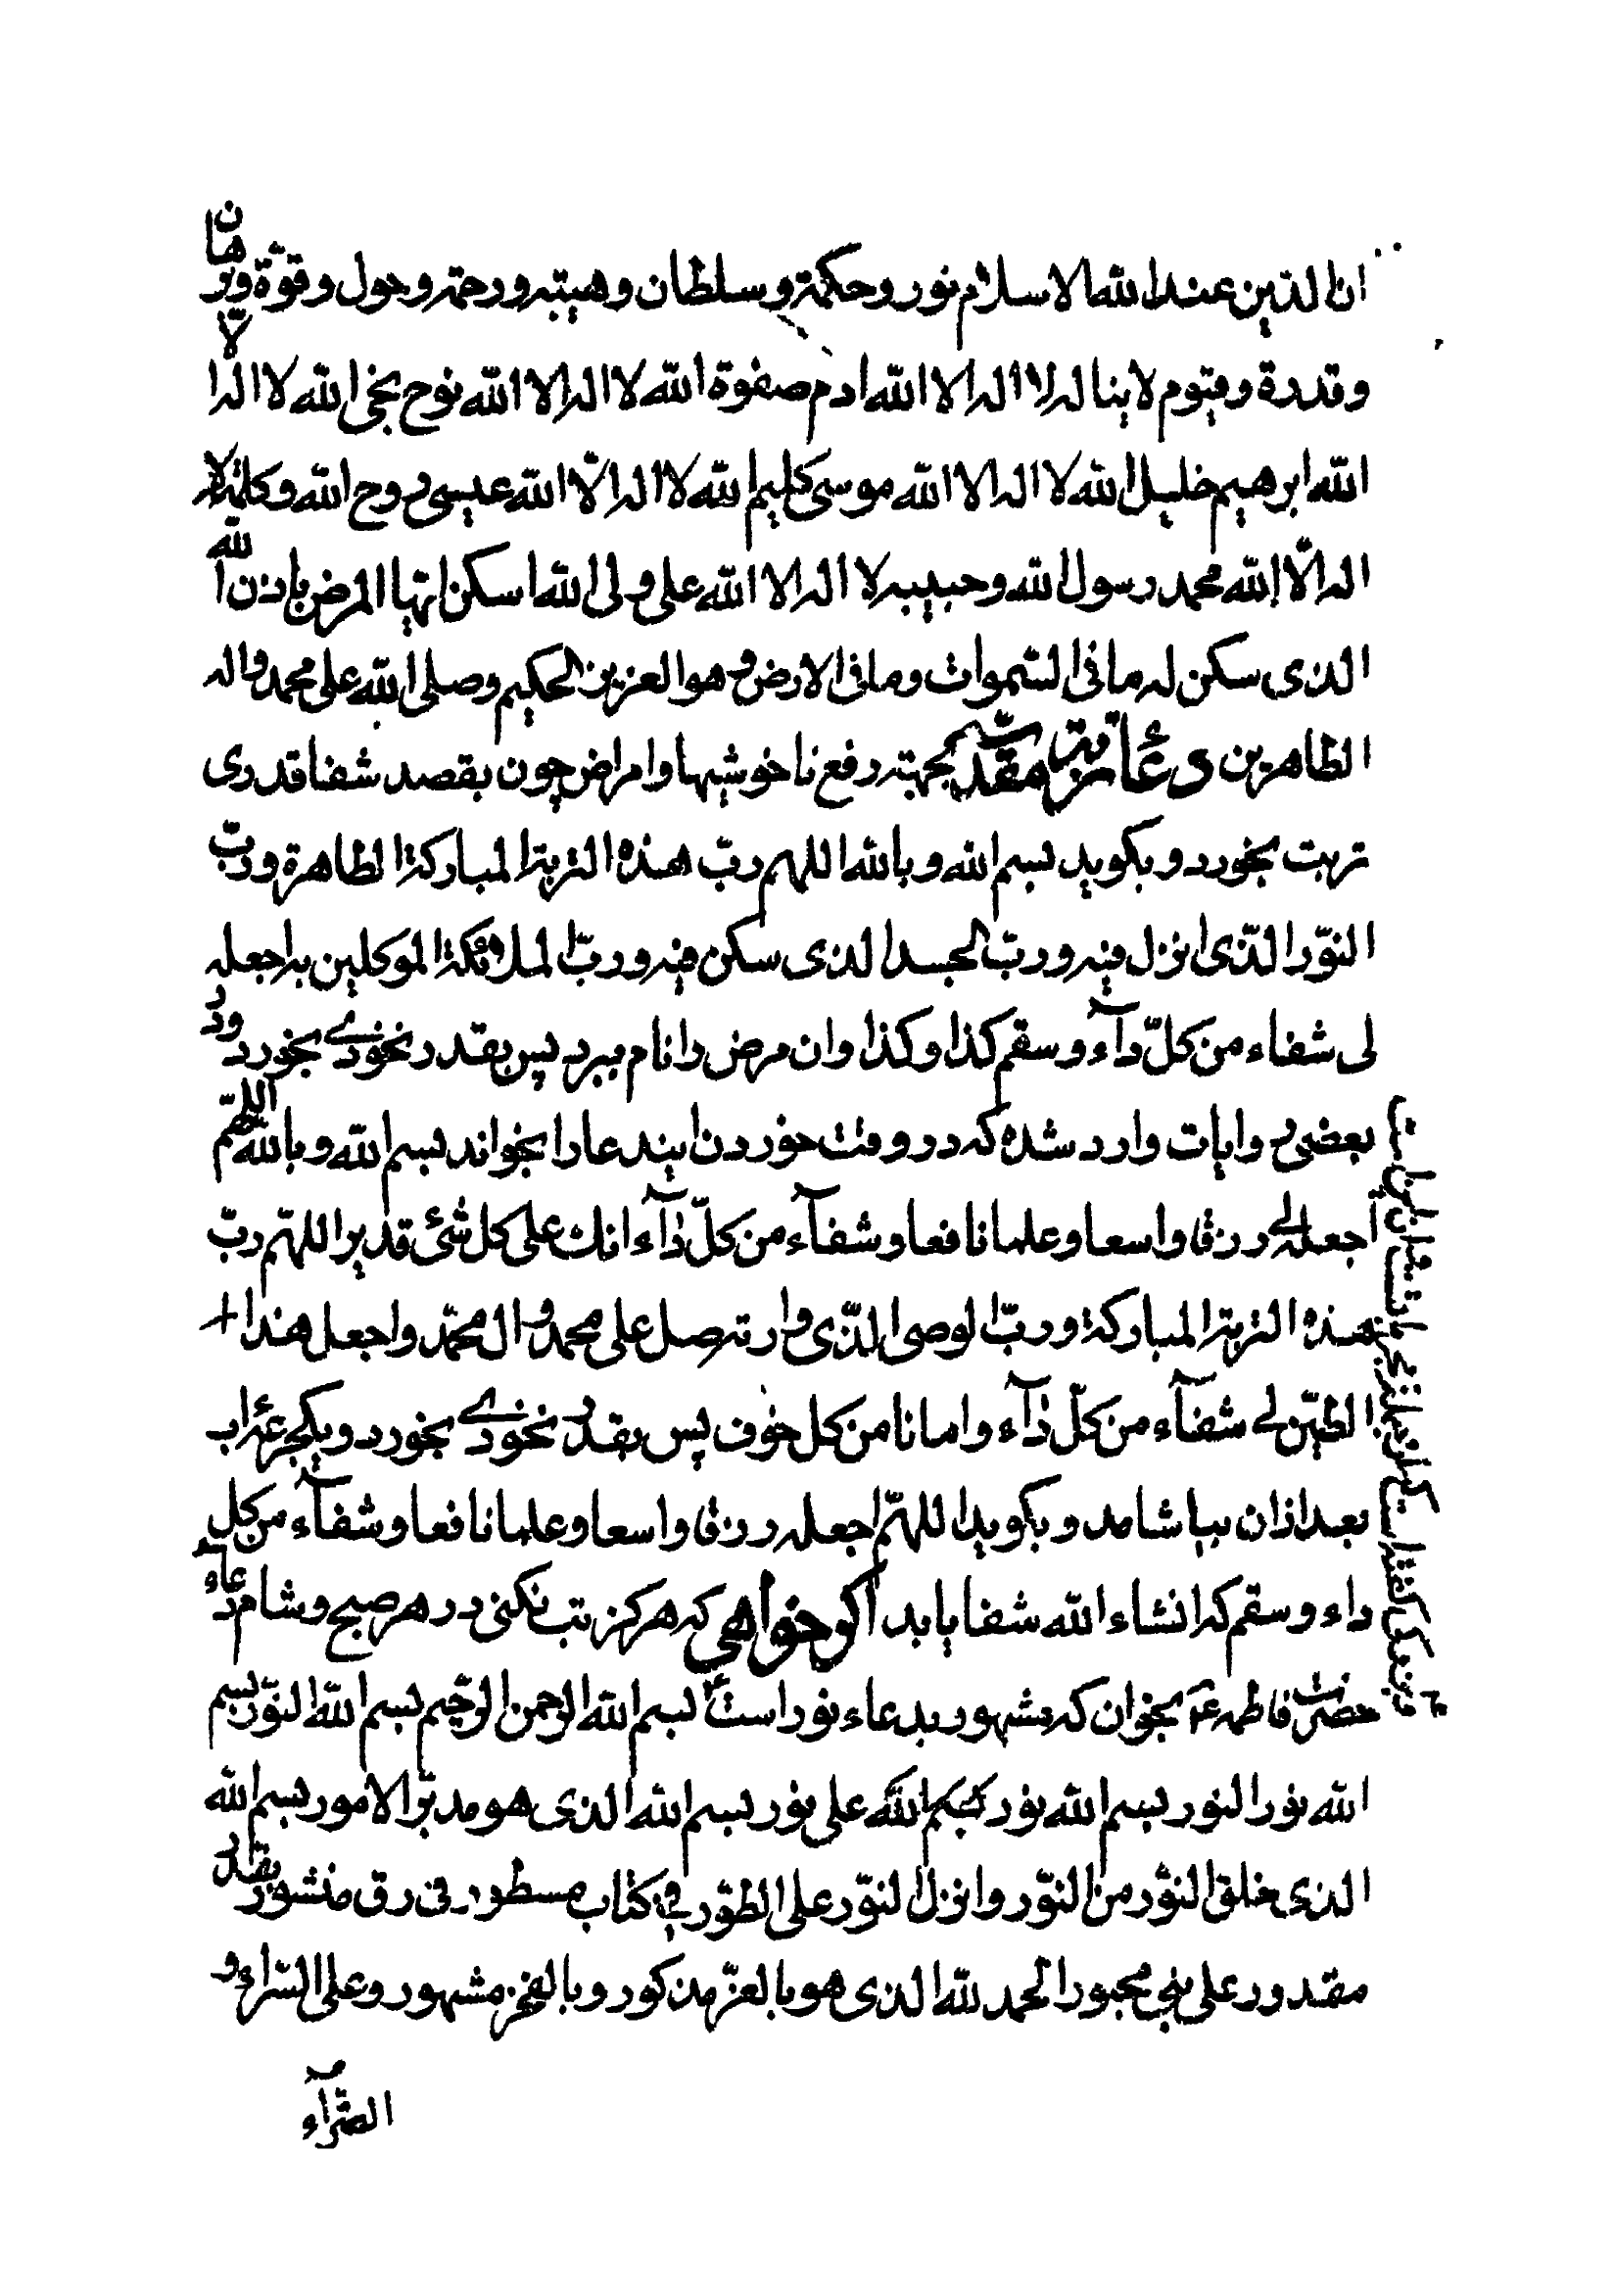 ان الدین عند الله الاسلام نور و حکمة و سلطان و هیبته و رحمة و حول و قوّة و برهان
و قدرة و قیوم لا ینا له لا اله الا الله ادم صفوة الله لا اله الا الله نوح نجی الله لا اله الّا
الله ابرهیم خلیل الله لا اله الا الله موسی کلیم الله لا اله الّا الله عیسی روح الله و کلمته لا
اله الّا الله محمد رسول الله و حبیبه لا اله الا الله علی ولی الله اسکن ایها المرض باذن الله
الذی سکن له ما فی السّموات و ما فی الارض و هو العزیز الحکیم و صلی الله علی محمد و اله
الطاهرین دعای تربت مقدّسه بجهته رفع ناخوشیها و امراض چون بقصد شفا قدری
تربت بخورد و بکوید بسم الله و بالله اللهم ربّ هذه التربة المبارکة الطاهرة و ربّ
النوّر الذّی انزل فیه و ربّ الجسد الذی سکن فیه و ربّ الملائکة الموکلین به اجعله
لی شفاء من کلّ دآء و سقم کذا و کذا و ان مرض را نام ببرد پس بقدر نخودی بخورد و در
بعضی روایات وارد شده که در وقت خوردن این دعا را بخواند بسم الله و بالله اللهمّ
اجعله لی رزقا واسعا و علما نافعا و شفآء من کلّ دآء انك علی کل شئ قدیر اللهمّ ربّ
هذه التربة المبارکة و ربّ الوصی الذّی وارته صل علی محمد و ال محمّد و اجعل هذا
الطّین لی شفآء من کلّ دآء و امانا من کل خوف پس بقدر نخودی بخورد و یکجرعه اب
بعد از ان بیاشامد و بکوید اللهمّ اجعله رزقا واسعا و علما نافعا و شفآء من کل
داء و سقم که انشاء الله شفا یابد اکر خواهی که هرکز تب نکنی در هر صبح و شام دعاء
حضرت فاطمه ع بخوان که مشهور بدعاء نور است بسم الله الرحمن الرحیم بسم الله النوّر بسم
الله نور النور بسم الله نور علی نور بسم الله الذی هو مدبّر الامور بسم الله
الذی خلق النوّر من النوّر و انزل النوّر علی الطوّر فی کتاب مسطور فی رق منشور بقدر
مقدور علی نبی محبور الحمد لله الذی هو بالعزّ مذکور و بالفخر مشهور و علی السّراء و
الضّرآء